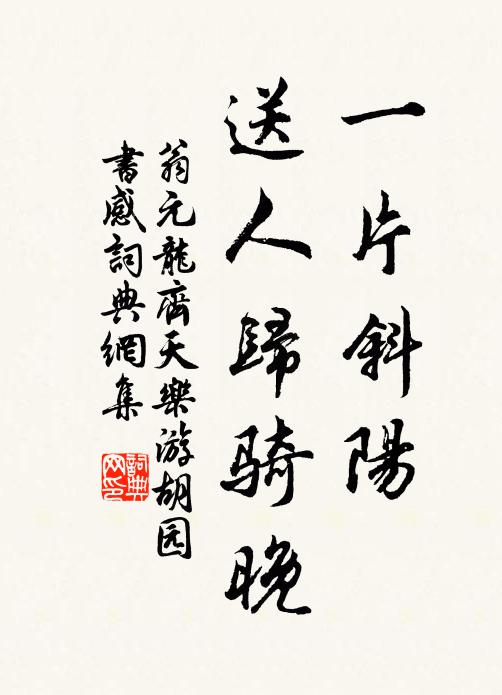 一片斜陽
送人歸騎晚
翁元龍齊天樂游胡园
書感詞典網集
詞典网印